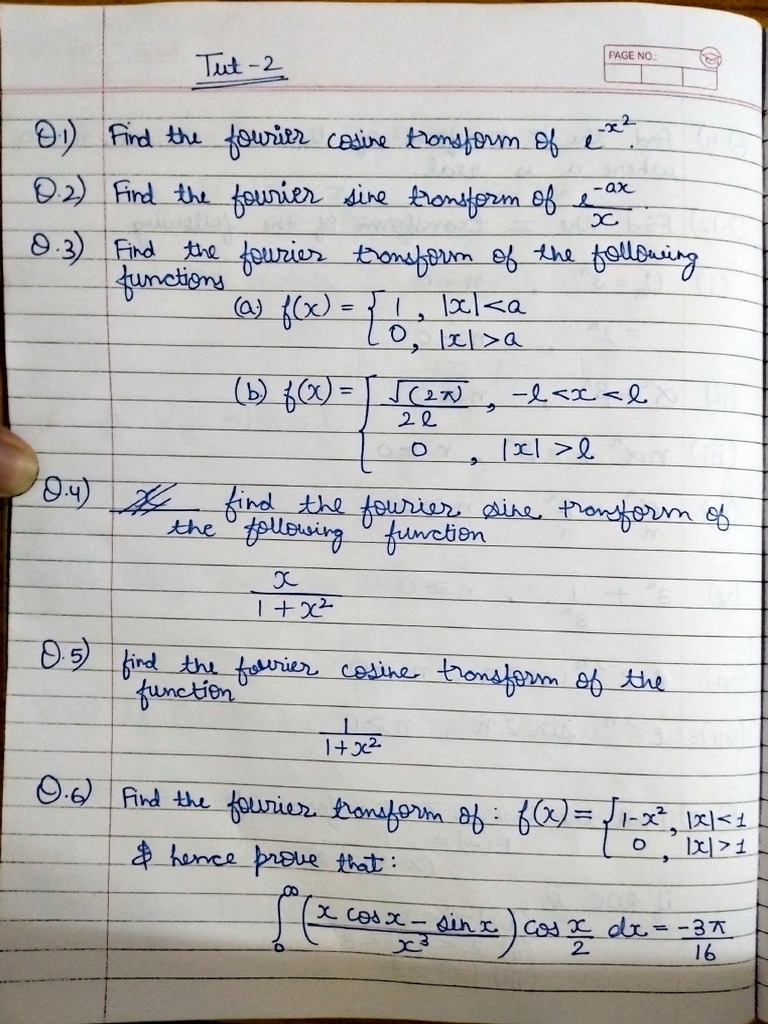 Tut - 2
PAGE NO.:
Q.1) Find the fourier cosine transform of e^-x².
Q.2) Find the fourier sine transform of e^-ax/x.
Q.3) Find the fourier transform of the following
functions
(a) f(x) = { 1, |x| < a
0, |x| > a
(b) f(x) = { √(2π)/2l, -l < x < l
0, |x| > l
Q.4) find the fourier sine transform of
the following function
x/(1 + x²)
Q.5) find the fourier cosine transform of the
function
1/(1+x²)
Q.6) Find the fourier transform of : f(x) = { 1-x², |x| < 1
0, |x| > 1
& hence prove that :
∫₀^∞ ((x cos x - sin x)/x³) cos x/2 dx = -3π/16